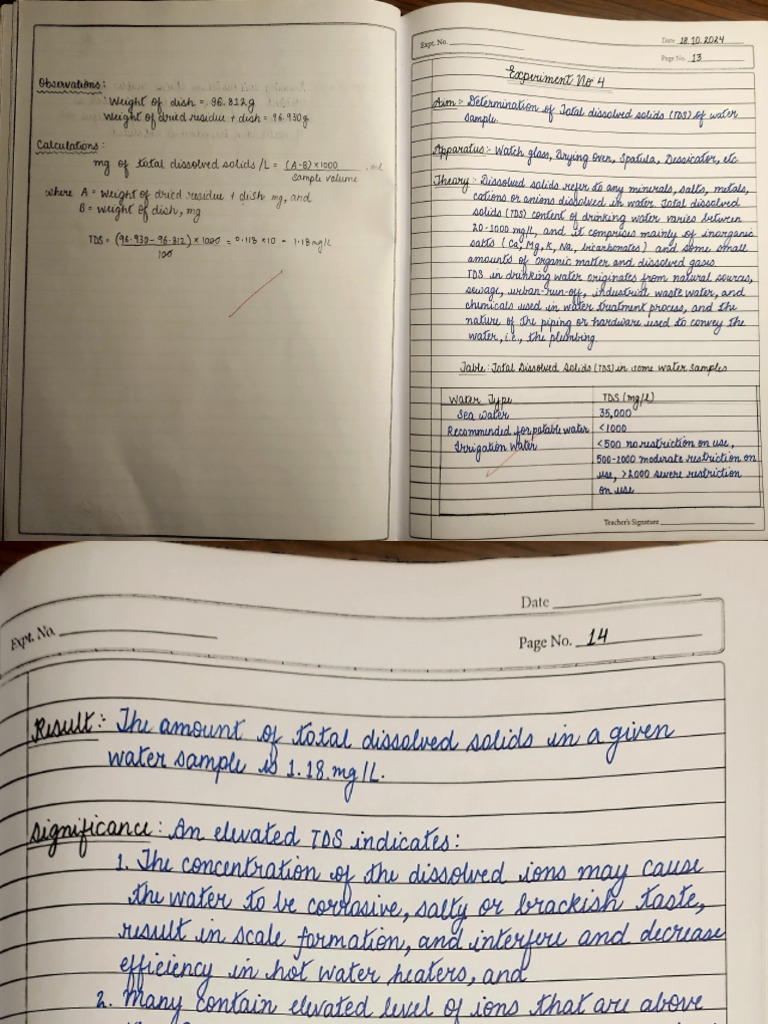 Observations:
Weight of dish = 96.812g
Weight of dried residue + dish = 96.930g
Calculations:
mg of total dissolved solids /L = (A-B)×1000
sample volume
where A = weight of dried residue + dish mg, and
B = weight of dish, mg
TDS = (96.930 - 96.812) × 1000 = 0.118 × 10 = 1.18 mg/L
100
Expt. No.
Date 18.10.2024
Page No. 13
Experiment No 4
Aim :- Determination of Total dissolved solids (TDS) of water
sample.
Apparatus :- Watch glass, Drying oven, Spatula, Dessicator, etc
Theory :- Dissolved solids refer to any minerals, salts, metals,
cations or anions dissolved in water. Total dissolved
solids (TDS) content of drinking water varies between
20-1000 mg/L, and it comprises mainly of inorganic
salts (Ca, Mg, K, Na, bicarbonates) and some small
amounts of organic matter and dissolved gases.
TDS in drinking water originates from natural sources,
sewage, urban-run-off, industrial waste water, and
chemicals used in water treatment process, and the
nature of the piping or hardware used to convey the
water, i.e., the plumbing.
Table: Total Dissolved Solids (TDS) in some water samples
Water Type TDS (mg/L)
Sea water 35,000
Recommended for potable water <1000
Irrigation Water <500 no restriction on use,
500-2000 moderate restriction on
use, >2000 severe restriction
on use
Teacher's Signature
Date
Expt. No.
Page No. 14
Result:- The amount of total dissolved solids in a given
water sample is 1.18 mg/L.
Significance: An elevated TDS indicates:
1. The concentration of the dissolved ions may cause
the water to be corrosive, salty or brackish taste,
result in scale formation, and interfere and decrease
efficiency in hot water heaters, and
2. Many contain elevated level of ions that are above